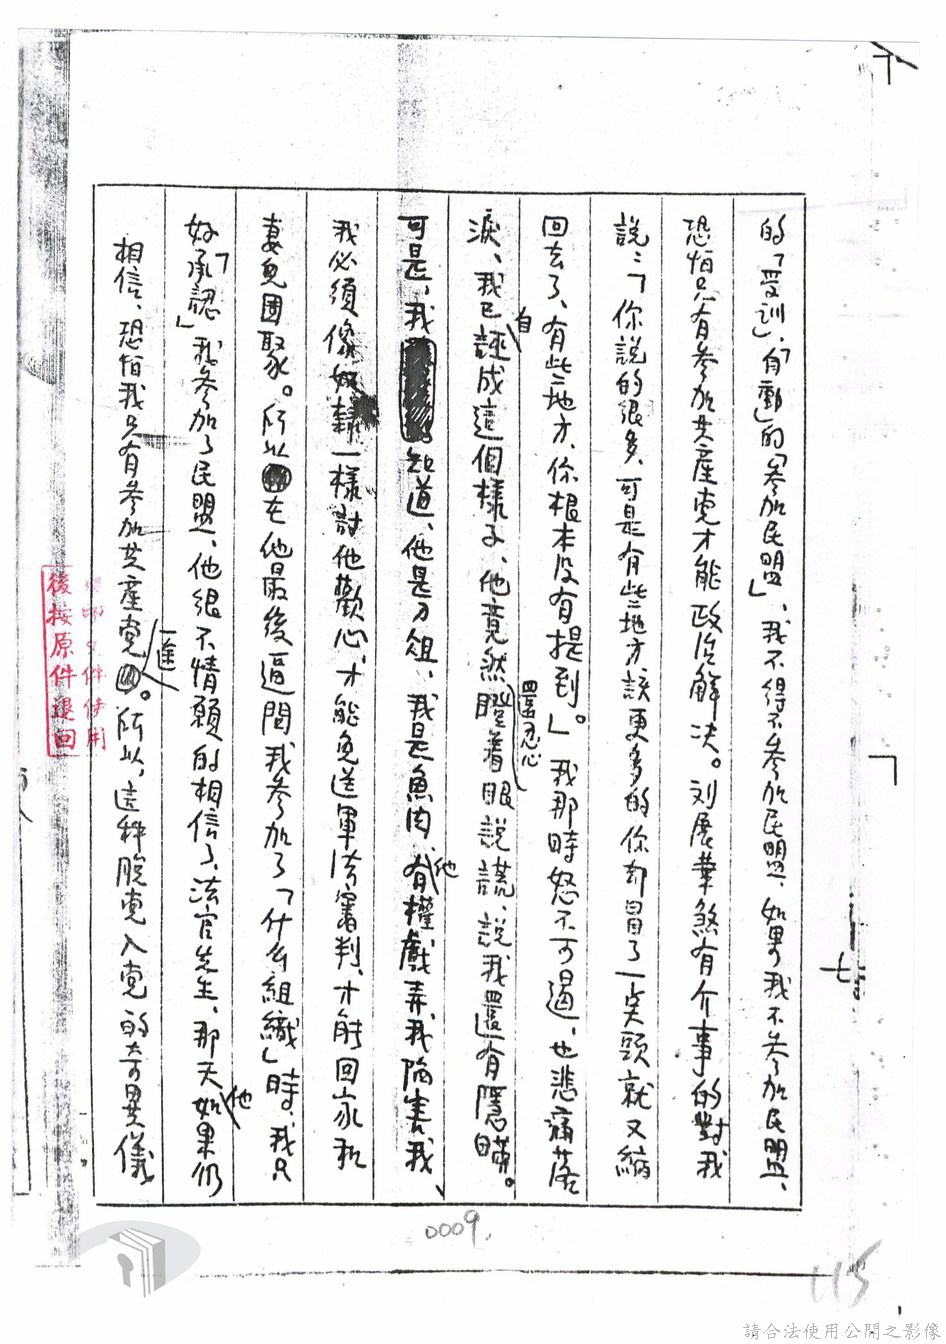 的「受訓」、「有動」的「參加民盟」、我不得不參加民盟、如果我不參加民盟、
恐怕只有參加共產党才能政治解决。刘展華煞有介事的對我
說：「你說的很多、可是有些地方該更多的你却冒了一点頭就又縮
回去了、有些地方、你根本没有提到」。我那時怒不可遏、也悲痛落
淚、我已自誣成這個樣子、他竟然還忍心瞪着眼說謊、說我還有隱瞞。
可是、我知道、他是刀俎、我是魚肉、他有權戲弄我陷害我、
我必須像奴隸一樣討他歡心、才能免送軍法審判、才能回家和
妻兒團聚。所以在他最後逼問我參加了「什么組織」時、我只
好「承認」我參加了民盟、他很不情願的相信了、法官先生、那天如果他仍
相信、恐怕我只有參加共產党一途。所以、這种脫党入党的奇異儀
後按原件退回
0009
115
七
請合法使用公開之影像